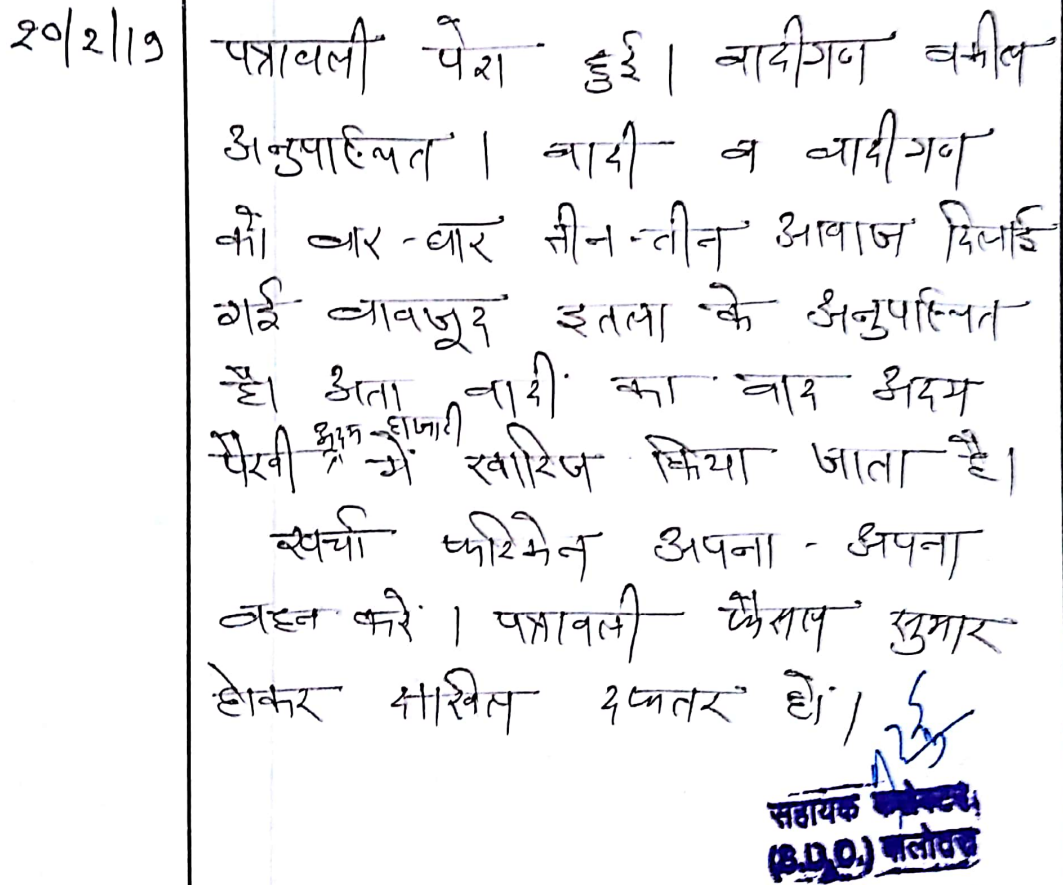 20/2/19
पत्रावली पेश हुई। वादीगण वकील
अनुपस्थित। वादी व वादीगण
को बार-बार तीन-तीन आवाज दिलाई
गई बावजूद इतला के अनुपस्थित
है। अतः वादी का वाद अदम
पैरवी अदम हाजरी में खारिज किया जाता है।
खर्चा फरिकेन अपना-अपना
वहन करें। पत्रावली फैसल सुमार
होकर दाखिल दफ्तर हों।
सहायक कलेक्टर
(S.D.O.)